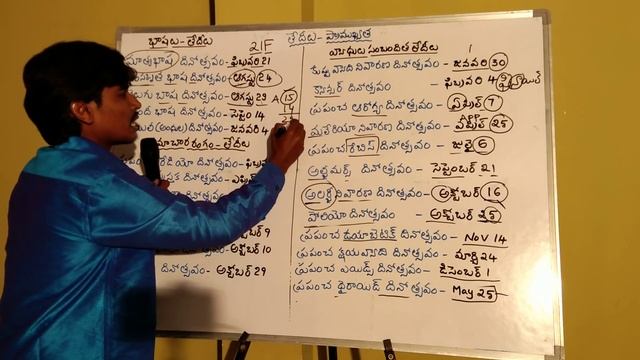 తేదీలు - ప్రాముఖ్యత
భాషలు - తేదీలు
21F
మాతృభాష దినోత్సవం - ఫిబ్రవరి 21
భాష దినోత్సవం - ఆగస్టు 24
భాష దినోత్సవం - ఆగస్టు 29
A 15
14
భాష దినోత్సవం - సెప్టెం 14
దినోత్సవం - జనవరి 4
సమాచారరంగం - తేదీలు
రేడియో దినోత్సవం - ఫిబ్ర
పుస్తక దినోత్సవం - ఏప్రి
9
దినోత్సవం - అక్టోబర్ 10
దినోత్సవం - అక్టోబర్ 29
వ్యాధులు సంబంధిత తేదీలు
కుష్ఠు వ్యాధి నివారణ దినోత్సవం - జనవరి 30
కాన్సర్ దినోత్సవం - ఫిబ్రవరి 4
ప్రపంచ ఆరోగ్య దినోత్సవం - ఏప్రిల్ 7
మలేరియా నివారణ దినోత్సవం - ఏప్రిల్ 25
ప్రపంచ రేబిస్ దినోత్సవం - జులై 6
అల్జీమర్స్ దినోత్సవం - సెప్టెంబర్ 21
అలర్జీ నివారణ దినోత్సవం - అక్టోబర్ 16
పోలియో దినోత్సవం - అక్టోబర్ 25
ప్రపంచ డయాబెటిక్ దినోత్సవం - NOV 14
ప్రపంచ క్షయవ్యాధి దినోత్సవం - మార్చి 24
ప్రపంచ ఎయిడ్స్ దినోత్సవం - డిసెంబర్ 1
ప్రపంచ థైరాయిడ్ దినోత్సవం - May 25